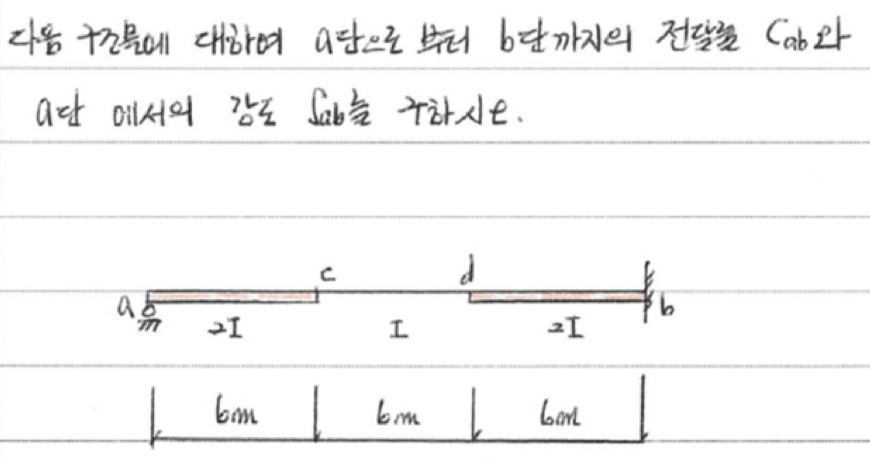 다음 구조물에 대하여 a단으로 부터 b단까지의 전달률 Cab와
a단 에서의 강도 Sab를 구하시오.
c d
a b
2I I 2I
6m 6m 6m